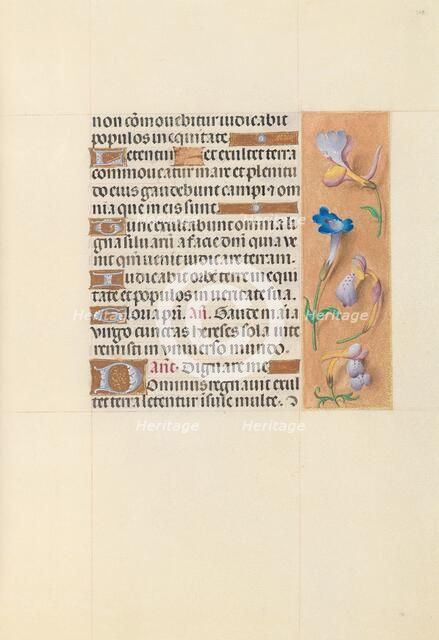 non cōmouebitur iudicabit
populos in equitate.
Letentur et exultet terra
commoueatur mare et plenitu
do eius gaudebunt campi ⁊ om
nia que in eis sunt.
Tunc exultabunt omnia li
gna siluarū a facie dn̄i quia ve
nit qm̄ uenit iudicare terram.
Iudicabit orbē terre in equi
tate et populos in ueritate sua.
Gloria pr̄i. An̄. Gaude maria
virgo cunctas hereses sola inte
remisti in vniuerso mundo.
Añt. Dignare me
Dominus regnauit exul
tet terra letentur īsule multe.
Heritage
Heritage
Heritage
Heritage
Heritage
Heritage